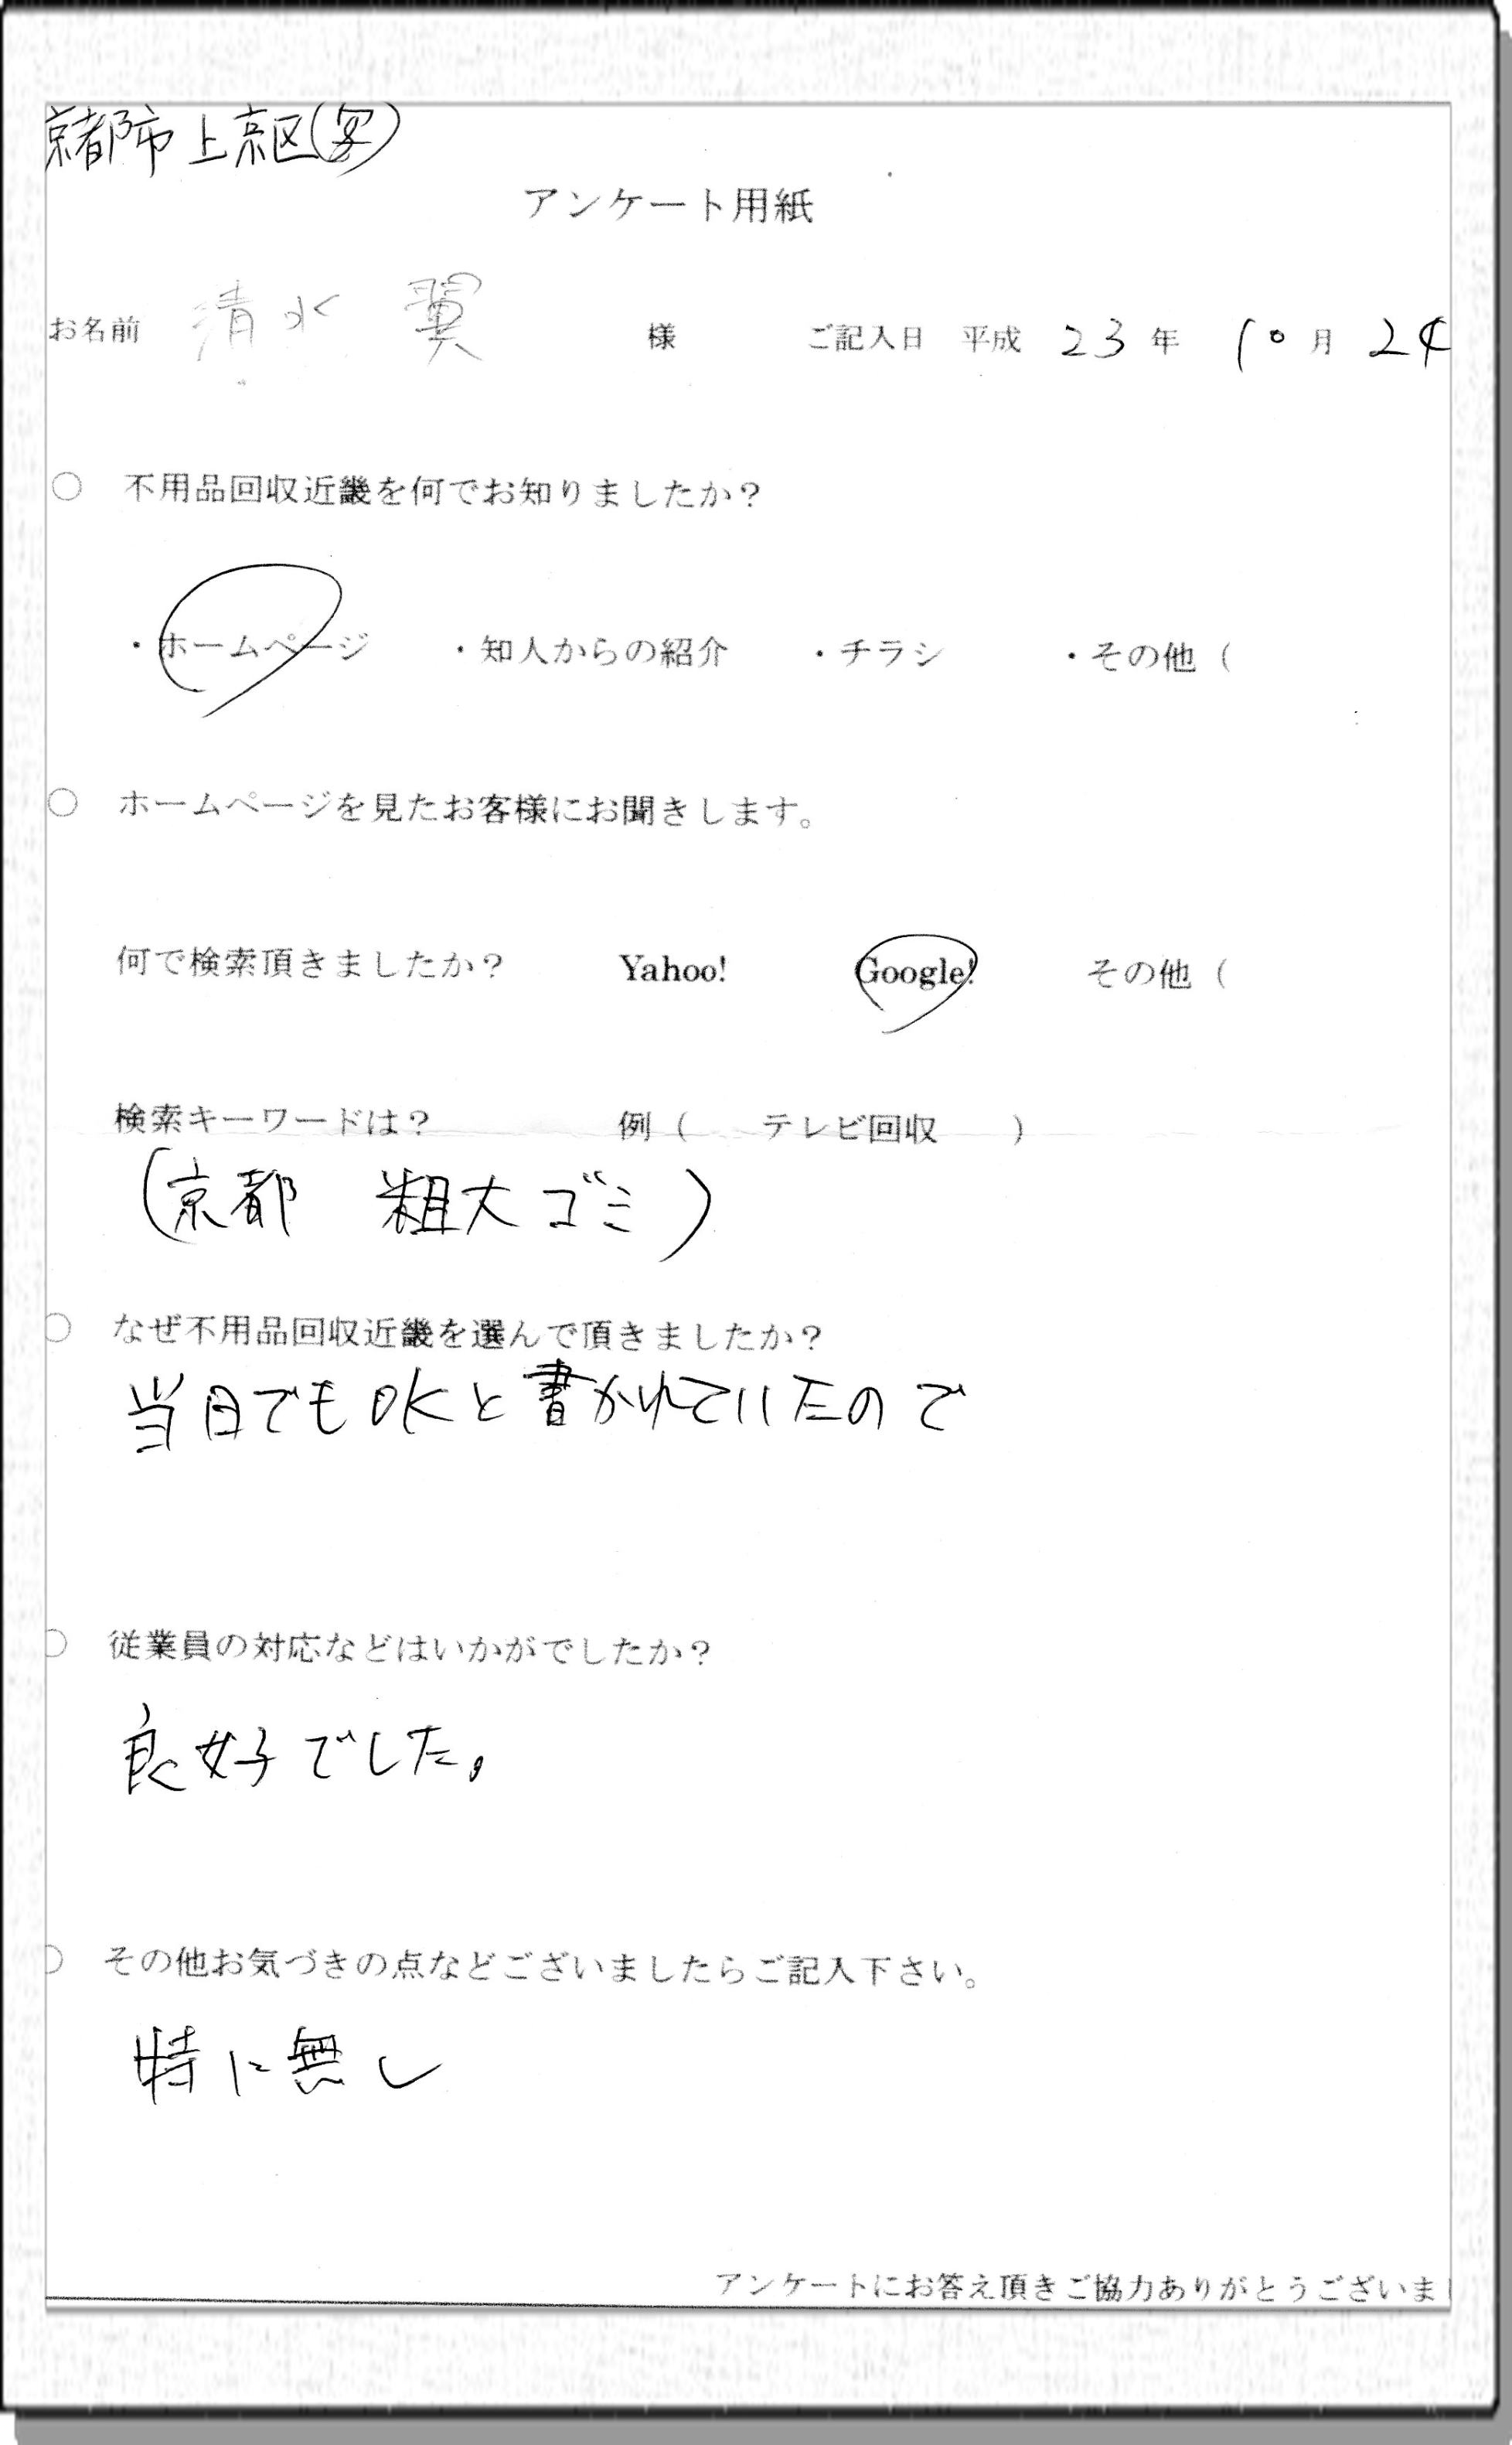 京都市上京区
アンケート用紙
お名前 清水 翼 様 ご記入日 平成 23 年 10 月 24
○ 不用品回収近畿を何でお知りましたか？
・ホームページ ・知人からの紹介 ・チラシ ・その他（
○ ホームページを見たお客様にお聞きします。
何で検索頂きましたか？ Yahoo! Google! その他（
検索キーワードは？ 例（ テレビ回収 ）
（京都 粗大ゴミ）
○ なぜ不用品回収近畿を選んで頂きましたか？
当日でもOKと書かれていたので
○ 従業員の対応などはいかがでしたか？
良好でした。
○ その他お気づきの点などございましたらご記入下さい。
特に無し
アンケートにお答え頂きご協力ありがとうございま